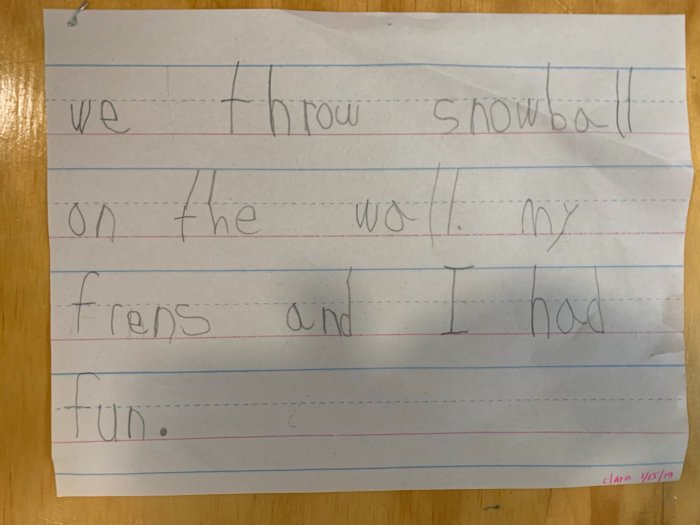 we throw snowball
on the wall. my
frens and I had
fun.
1/15/19